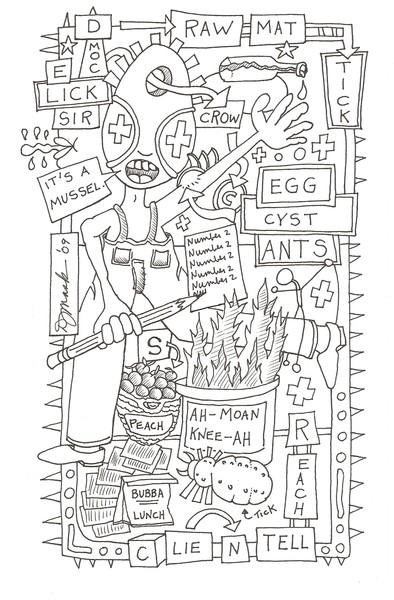 D
RAW MAT
MOC
E
LICK
SIR
CROW
TICK
IT'S A
MUSSEL.
C
EGG
CYST
ANTS
Number 2
Number 2
Number 2
Number 2
Number 2
'09
S
PEACH
AH-MOAN
KNEE-AH
R
EACH
BUBBA
LUNCH
Tick
C LIE N TELL